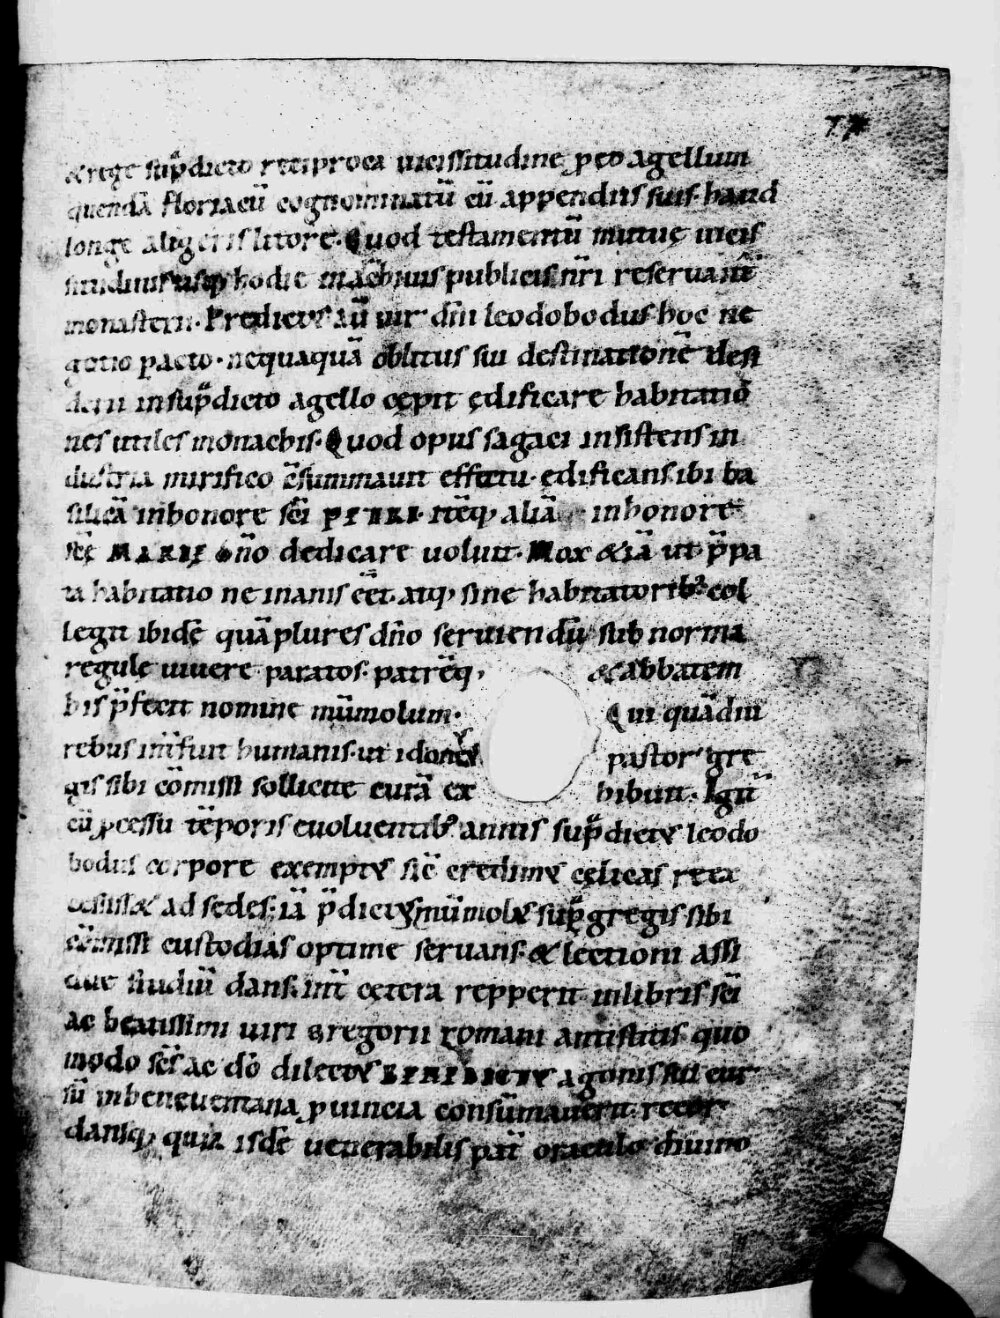 77
& rege sup̄dicto reciproca uicissitudine ꝓ eo agellum
quendā floriacū cognominatū cū appendiis suis haud
longe a ligeris litore. Quod testamentū mutuę uicis
situdinis usq; hodie in archiuis publicis nr̄i reseruant̄
monasterii. Predictꝰ aū uir dn̄i leodobodus hoc ne
gotio pacto. nequaquā oblitus sui destinationē desi
derii in sup̄dicto agello cępit ędificare habitatio
nes utiles monachis. Quod opus sagaci insistens in
dustria mirifico c̄summauit effectu. ędificans ibi ba
silicā in honore sc̄i PETRI. itēq; aliā in honore
sc̄ę MARIĘ dn̄o dedicare uoluit. Mox &iā ut p̄pa
ta habitatio ne inanis eēt atq; sine habitatorib; col
legit ibidē quāplures dn̄o seruiendū sub norma
regule uiuere paratos. patrēq; & abbatem
his p̄fecit nomine mūmolum. Qui quādiu
rebus int̄fuit humanis. ut idoneꝰ pastor gre
gis sibi cōmissi sollicite curā exhibuit. Igit̄
cū ꝓcessu tēporis euoluentib; annis sup̄dictꝰ leodo
bodus corpore exemptꝰ sic̄ credimꝰ cęlicas
ad sedes. iā p̄dictꝰ mūmolꝰ sup̄ gregis sibi
cōmissi custodias optime seruans. & lectioni assi
due studiū dans. int̄ cetera repperit in libris sc̄i
ac beatissimi uiri gregorii romani antistitis quo
modo sc̄s ac dō dilectꝰ BENEDICTꝰ agonis sui cur
sū in beneuentana ꝓuincia consūmauerit. recor
dansq; quia isdē uenerabilis pat̄ oraculo diuino